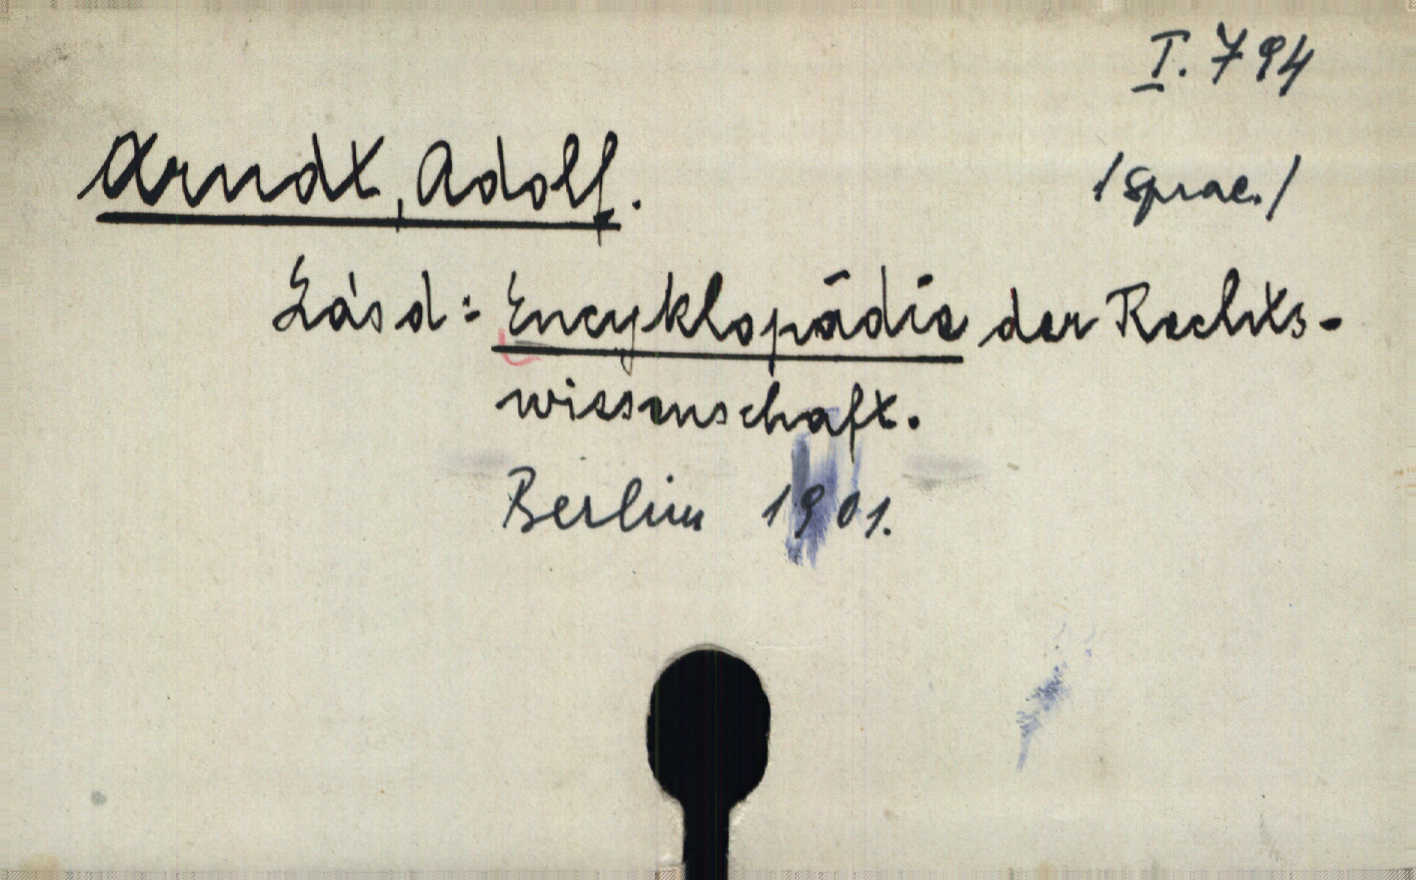 I. 794
Arndt, Adolf.
/Sprae./
Lásd: Encyklopädie der Rechts-
wissenschaft.
Berlin 1901.